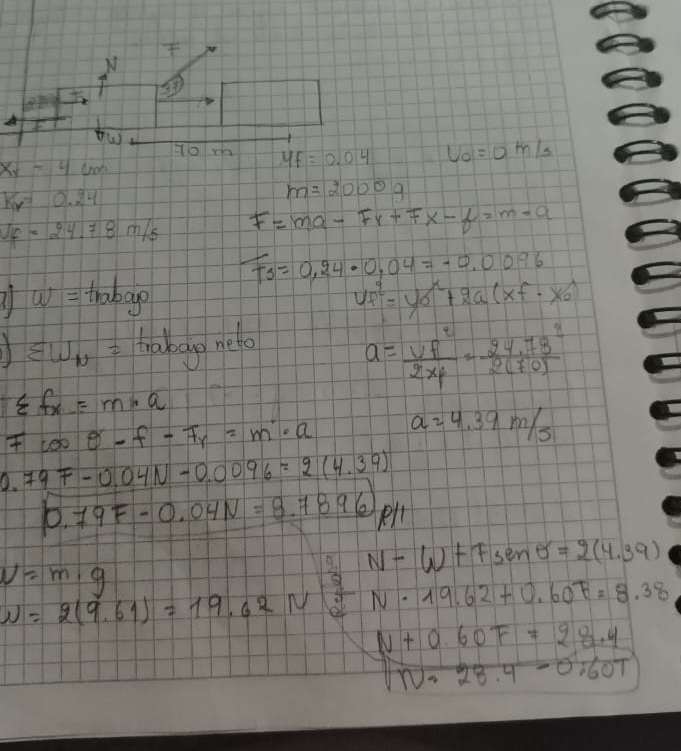 F
N
37
F
W
70 m
Xr = 4 cm
Mf = 0.04
Vo = 0 m/s
Kr = 0.24
m = 2000g
Vf = 24.78 m/s
F = ma - Fr + Fx - f = m - a
Fs = 0,24 · 0,04 = -0.0096
W = trabajo
Vf² = Vo² + 2a (xf - xo)
ΣWN = trabajo neto
a = Vf² / 2xf = 24.78² / 2(70)
Σ fx = m · a
a = 4.39 m/s
F cos θ - f - Fr = m · a
0.79F - 0.04N - 0.0096 = 2(4.39)
0.79F - 0.04N = 8.7896
N - W + F sen θ = 2(4.39)
W = m · g
W = 2(9.61) = 19.62 N
N - 19.62 + 0.60F = 8.38
N + 0.60F = 28.4
N = 28.4 - 0.60F